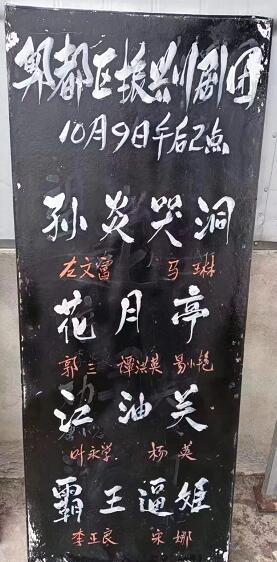 郫都区振兴川剧团
10月9日午后2点
孙炎哭洞
左文雷 马琳
花月亭
郭三 谭洪英 易小艳
江油关
叶永学 杨英
霸王逼姬
李正良 宋娜